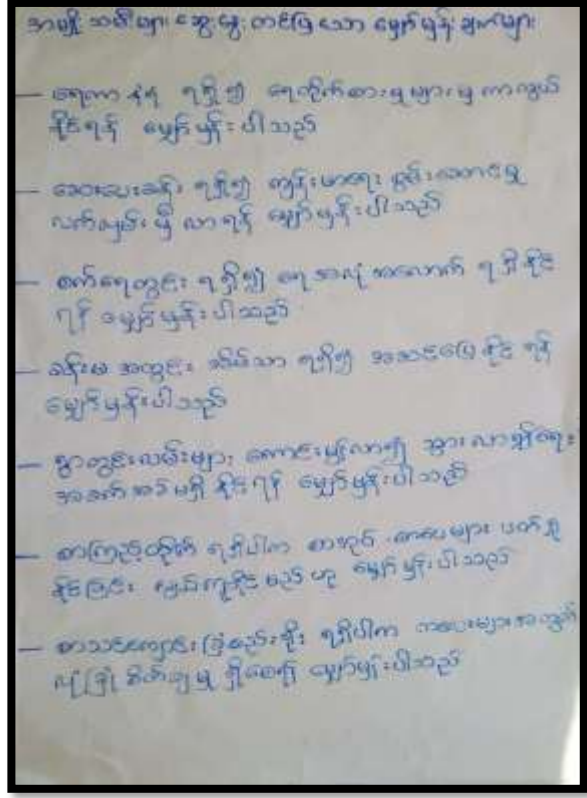 အမျိုးသမီးများ ဆွေးနွေး တင်ပြသော မျှော်မှန်းချက်များ
– ရေကာနံရံ ရရှိ၍ ရေတိုက်စားမှုများမှ ကာကွယ်
နိုင်ရန် မျှော်မှန်းပါသည်
– ဆေးပေးခန်း ရရှိ၍ ကျန်းမာရေး စွမ်းဆောင်မှု
လက်လှမ်းမှီ လာရန် မျှော်မှန်းပါသည်
– စက်ရေတွင်း ရရှိ၍ ရေအလုံအလောက် ရရှိနိုင်
ရန် မျှော်မှန်းပါသည်
– ခန်းမ အတွင်း အိမ်သာ ရရှိ၍ အဆင်ပြေနိုင်ရန်
မျှော်မှန်းပါသည်
– ရွာတွင်းလမ်းများ ကောင်းမွန်လာ၍ သွားလာရေး
အခက်အခဲမရှိနိုင်ရန် မျှော်မှန်းပါသည်
– စာကြည့်တိုက် ရရှိပါက စာအုပ် စာပေများ ဖတ်ရှု
နိုင်ခြင်း လွယ်ကူနိုင်မည်ဟု မျှော်မှန်းပါသည်
– စာသင်ကျောင်း ခြံစည်းရိုး ရရှိပါက ကလေးများအတွက်
လုံခြုံ စိတ်ချမှု ရှိစေ၍ မျှော်မှန်းပါသည်